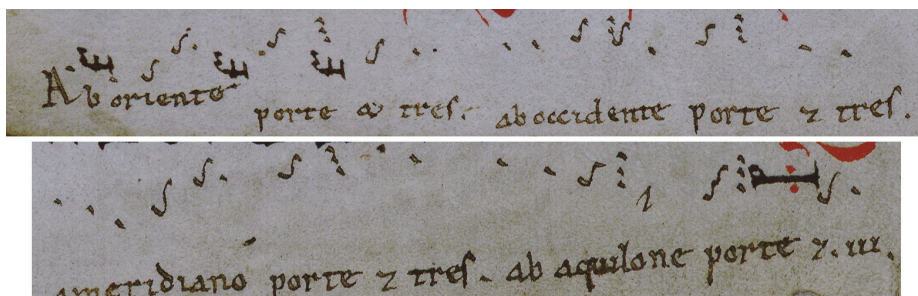 Ab oriente porte & tres. ab occidente porte ⁊ tres.
ameridiano porte ⁊ tres. ab aquilone porte ⁊. III.